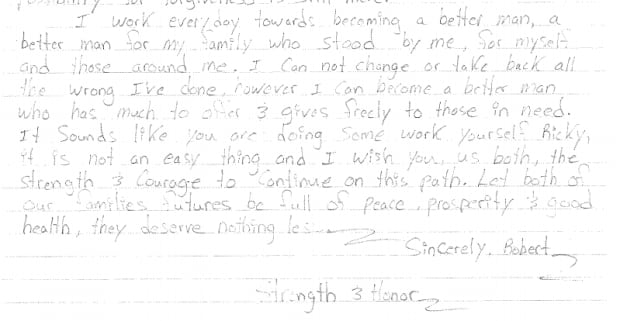 possibility for forgiveness is still there.
I work everyday towards becoming a better man, a
better man for my family who stood by me, for myself
and those around me. I can not change or take back all
the wrong I've done, however I can become a better man
who has much to offer & gives freely to those in need.
It sounds like you are doing some work yourself Ricky,
it is not an easy thing and I wish you, us both, the
strength & Courage to continue on this path. Let both of
our families futures be full of peace, prosperity & good
health, they deserve nothing les
Sincerely. Robert
Strength & Honor